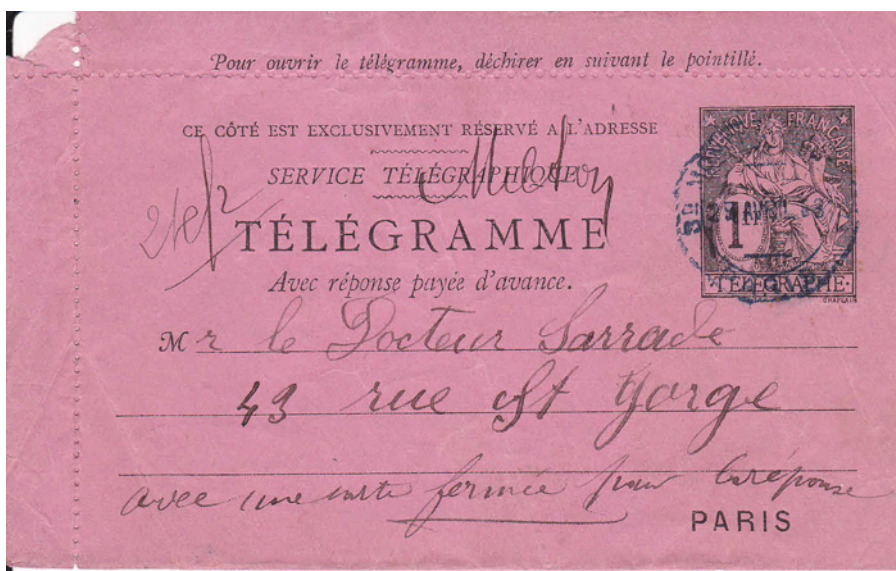 Pour ouvrir le télégramme, déchirer en suivant le pointillé.
CE CÔTÉ EST EXCLUSIVEMENT RÉSERVÉ A L'ADRESSE
SERVICE TÉLÉGRAPHIQUE
TÉLÉGRAMME
Avec réponse payée d'avance.
REPUBLIQUE FRANCAISE
1 FR
TELEGRAPHE
CHAPLAIN
Mr le Docteur Sarrade
43 rue St Gorge
avec une carte fermée pour la réponse
PARIS